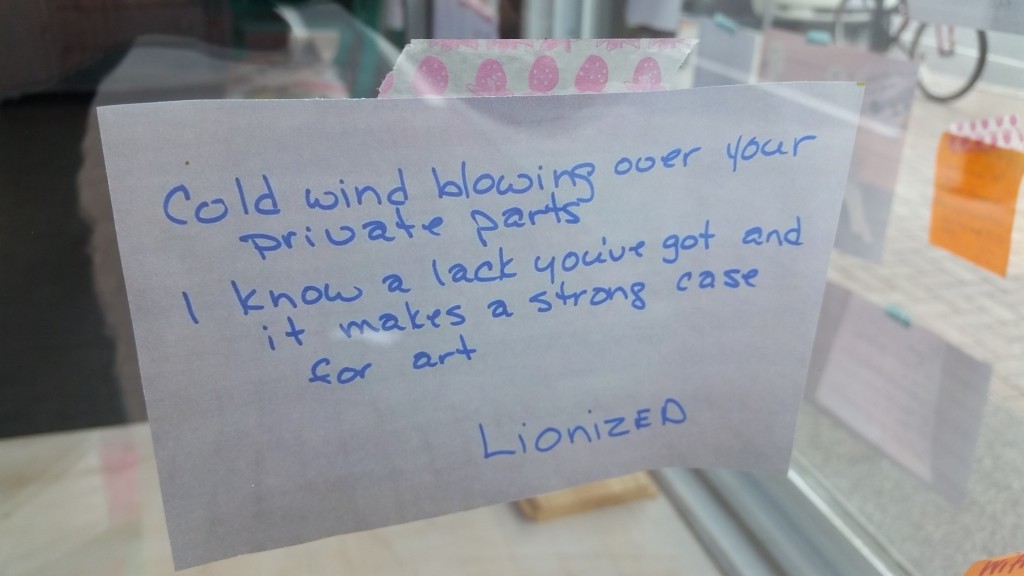 Cold wind blowing over your
private parts
I know a lack you've got and
it makes a strong case
for art
LionizED